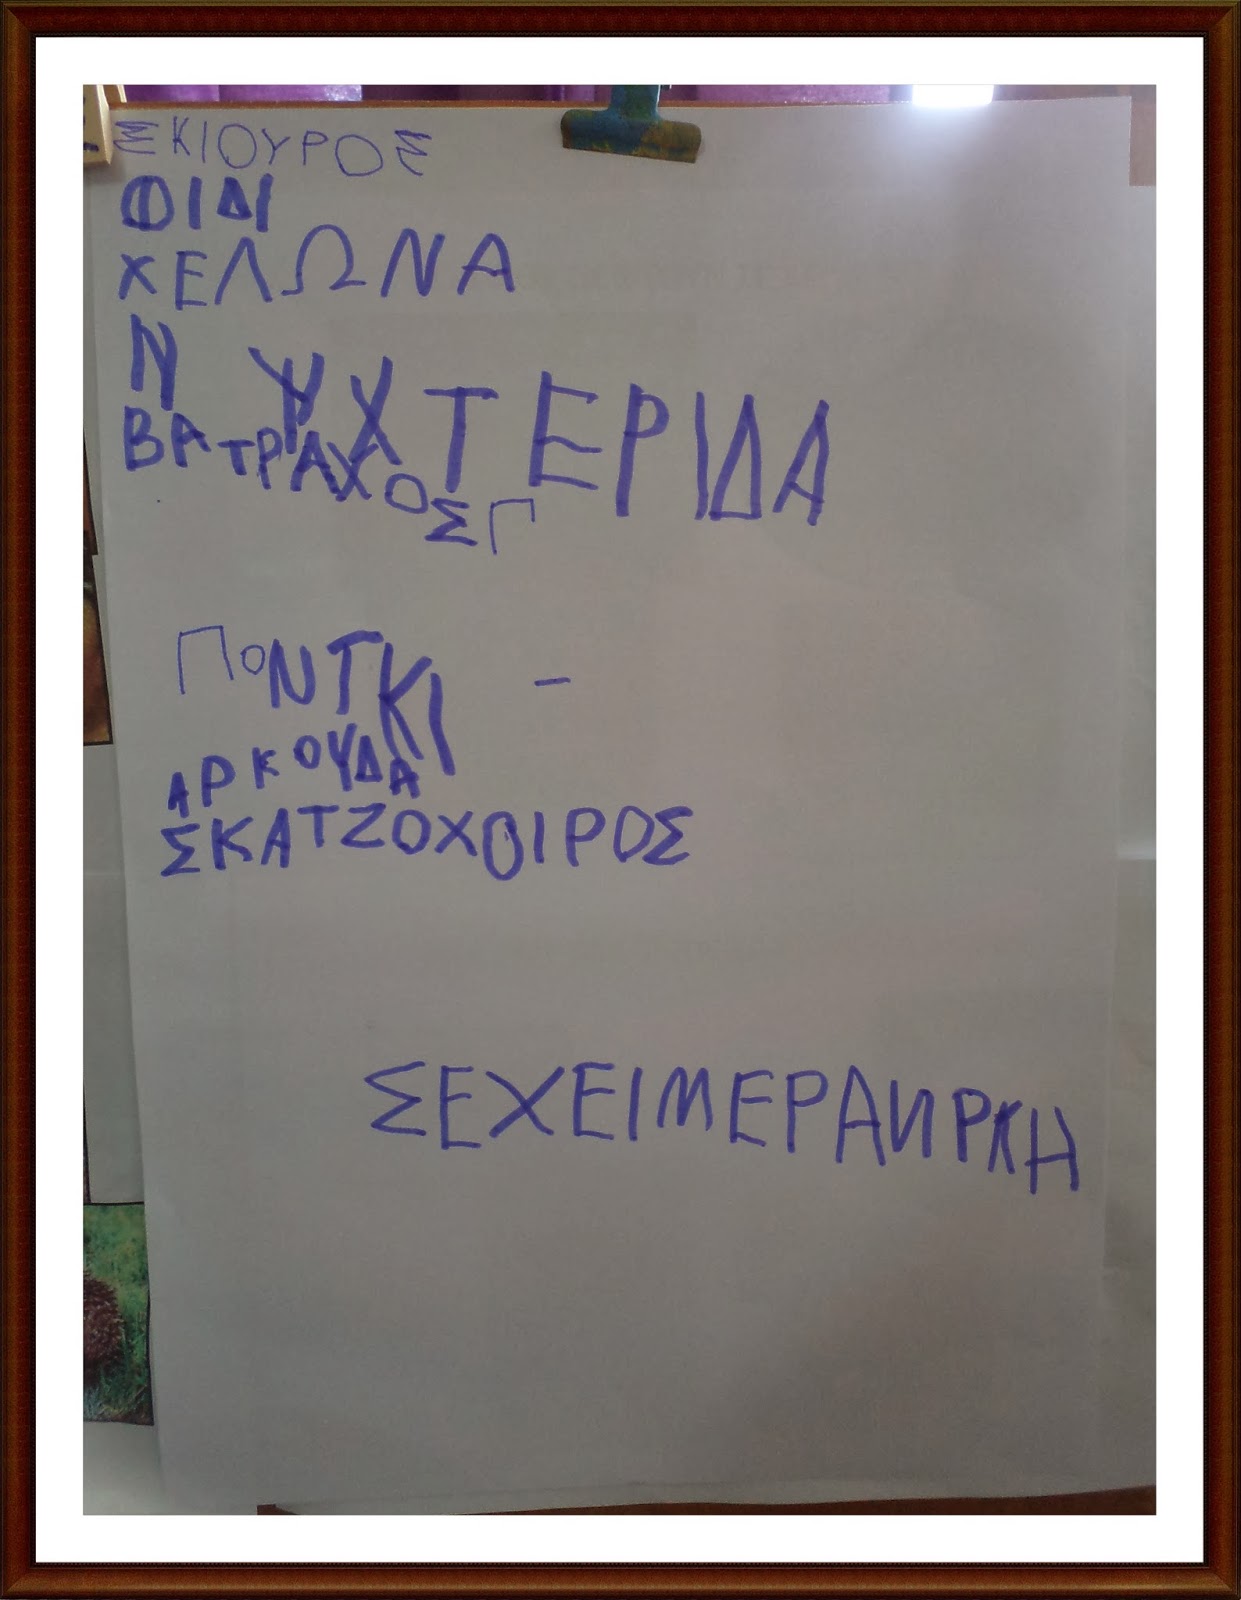 ΣΚΙΟΥΡΟΣ
ΦΙΔΙ
ΧΕΛΩΝΑ
Ν ΥΧΤΕΡΙΔΑ
ΒΑΤΡΑΧΟΣΓ
ΠΟΝΤΚΙ –
ΑΡΚΟΥΔΑ
ΣΚΑΤΖΟΧΟΙΡΟΣ
ΣΕΧΕΙΜΕΡΑΝΡΚΗ